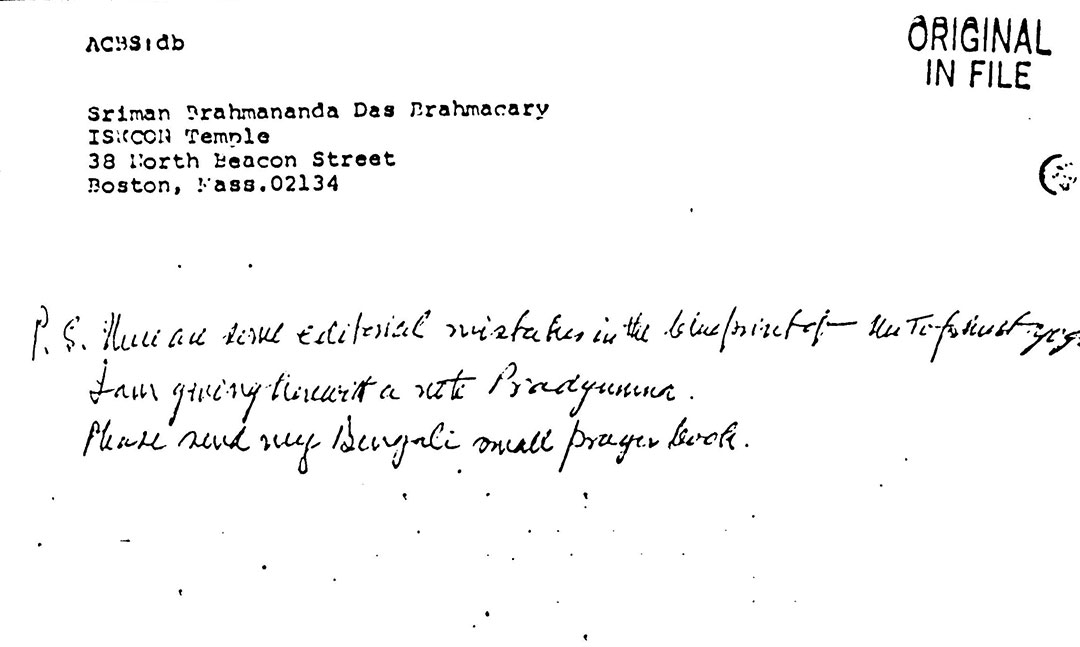 ACBS:db
ORIGINAL
IN FILE
Sriman Brahmananda Das Brahmacary
ISKCON Temple
38 North Beacon Street
Boston, Mass.02134
P. S. There are some editorial mistakes in the blueprint of
I am giving herewith a note Pradyumna.
Please send my Bengali small prayer book.